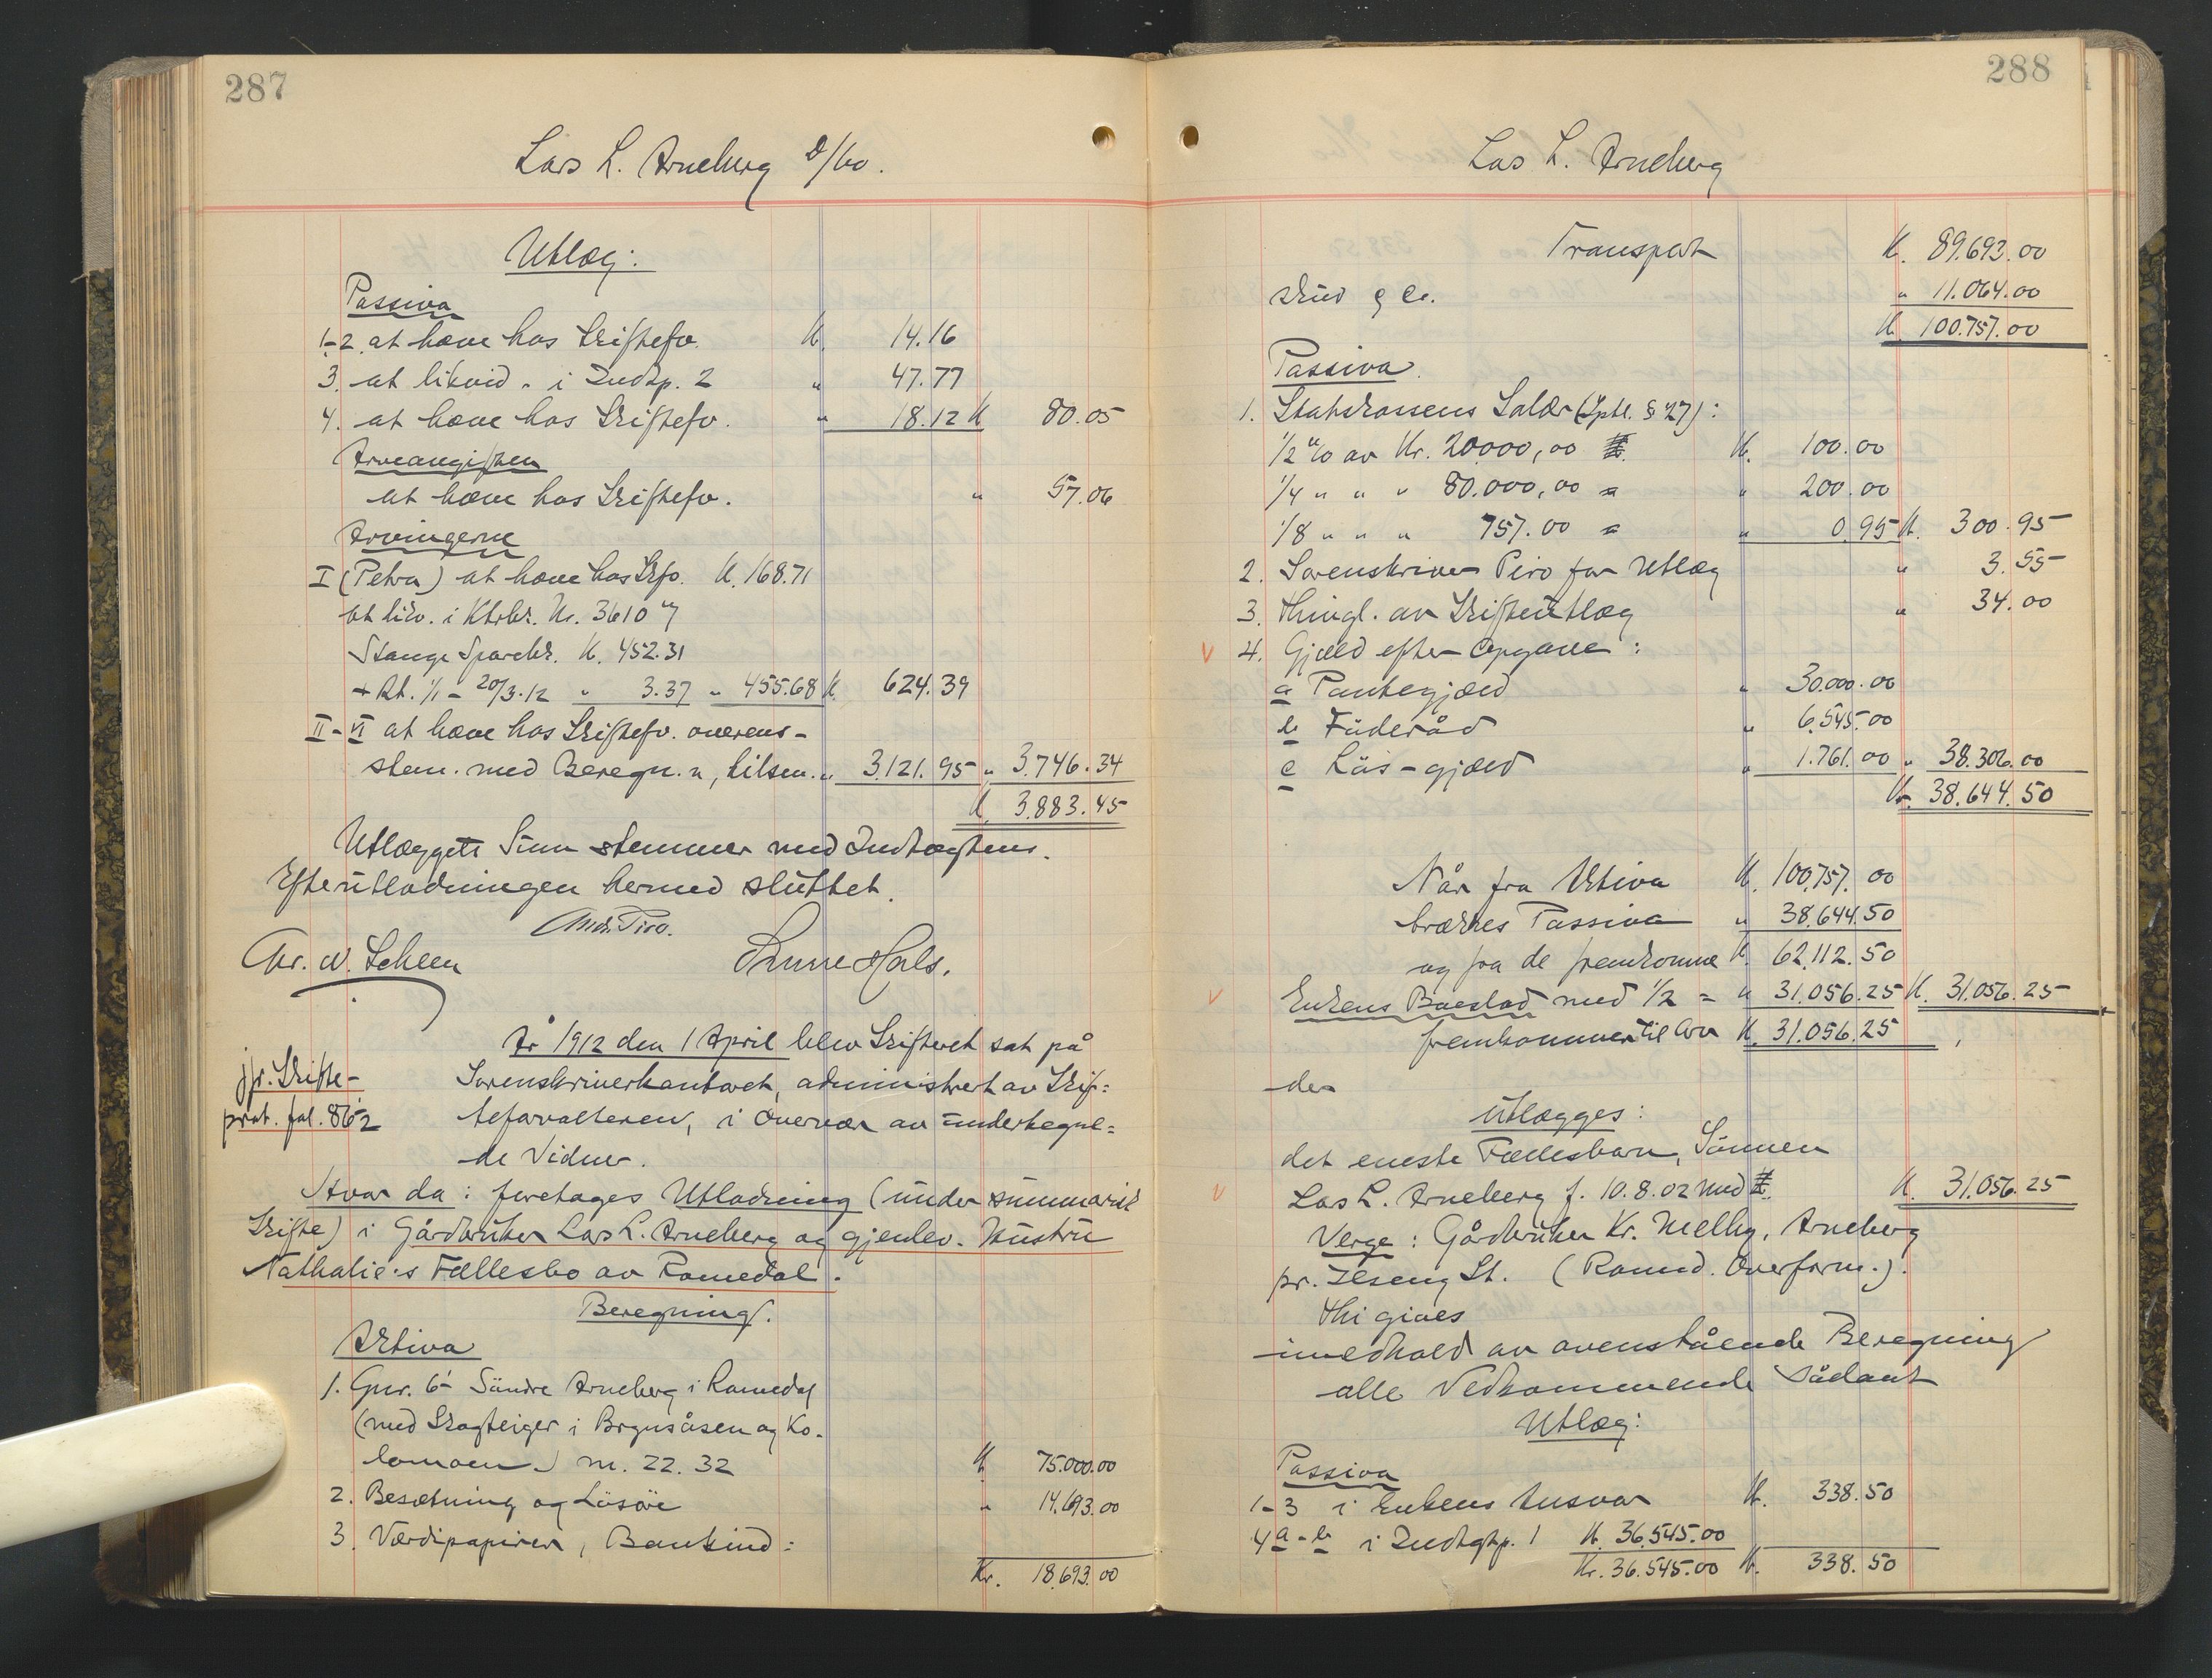 287
Lars L. Arneberg D/bo.
Utlæg:
Passiva
1-2. at hæve hos Skiftefv. K. 14.16
3. at likvid. i Indtp. 2 " 47.77
4. at hæve hos Skiftefv. " 18.12 K 80.05
Arveavgiften
at hæve hos Skiftefv. " 57.06
Arvingerne
I (Petra) at hæve hos Skfv. K. 168.71
at likv. i Ktrbk. Nr. 3610
Stange Sparebk. K. 452.31
+ Rt. 1/1 - 20/3.12 " 3.37 " 455.68 K. 624.39
II-VI at hæve hos Skiftefv. overens-
stem. med Beregn. n, tilsm. " 3.121.95 " 3.746.34
K. 3.883.45
Utlæggets Sum stemmer med Indtægtens.
Efterutlodningen hermed sluttet.
Andr. Piro.
Chr. W. Scheen
År 1912 den 1 April blev Skifteret sat på
jfr. Skifte-
prot. fol. 862
Sorenskriverkontoret, administrert av Skif=
teforvalteren, i Overvær av undertegne=
de Vidner.
Hvor da: foretages Utlodning (under summarisk
Skifte) i Gårdbruker Lars L. Arneberg og gjenlev. Hustru
Nathalie's Fællesbo av Romedal.
Beregning.
Aktiva
1. Gnr. 6 Søndre Arneberg i Romedal
(med Skogteiger i Brynsåsen og Ko-
lomoen) m. 22.32 K 75.000.00
2. Besætning og Løsøre " 14.693.00
3. Værdipapirer, Bankind:
Kr. 18.693.00
288
Las L. Arneberg
Transport K. 89.693.00
skud & c. " 11.064.00
K. 100.757.00
Passiva.
1. Statskassens Salær (Sptl. § 27):
1/2 % av Kr. 20000,00 K. 100.00
1/4 " " " 80.000,00 = " 200.00
1/8 " " " 757.00 = " 0.95 K. 300.95
2. Sorenskriver Piro for Utlæg " 3.55
3. Thingl. av Skifteutlæg " 34.00
4. Gjæld efter Opgave:
a Pantegjæld " 30.000.00
b Føderåd " 6.545.00
c Løs-gjæld " 1.761.00 " 38.306.00
Kr. 38.644.50
Når fra Aktiva K. 100.757.00
trækkes Passiva " 38.644.50
og fra de fremkomne K. 62.112.50
Enkens Boeslod med 1/2 = " 31.056.25 K. 31.056.25
fremkommer til Arv K. 31.056.25
der
Utlægges:
det eneste Fællesbarn, Sønnen
Las L. Arneberg f. 10.8.02 med K. 31.056.25
Verge: Gårdbruker Kr. Melby, Arneberg
pr. Ilseng St. (Romed. Overform.).
Thi gives
i medhold av ovenstående Beregning
alle Vedkommende sådant
Utlæg:
Passiva
1-3 i Enkens Ansvar K. 338.50
4 a-b i Indtgtp. 1 K. 36.545.00
Kr. 36.545.00 K. 338.50